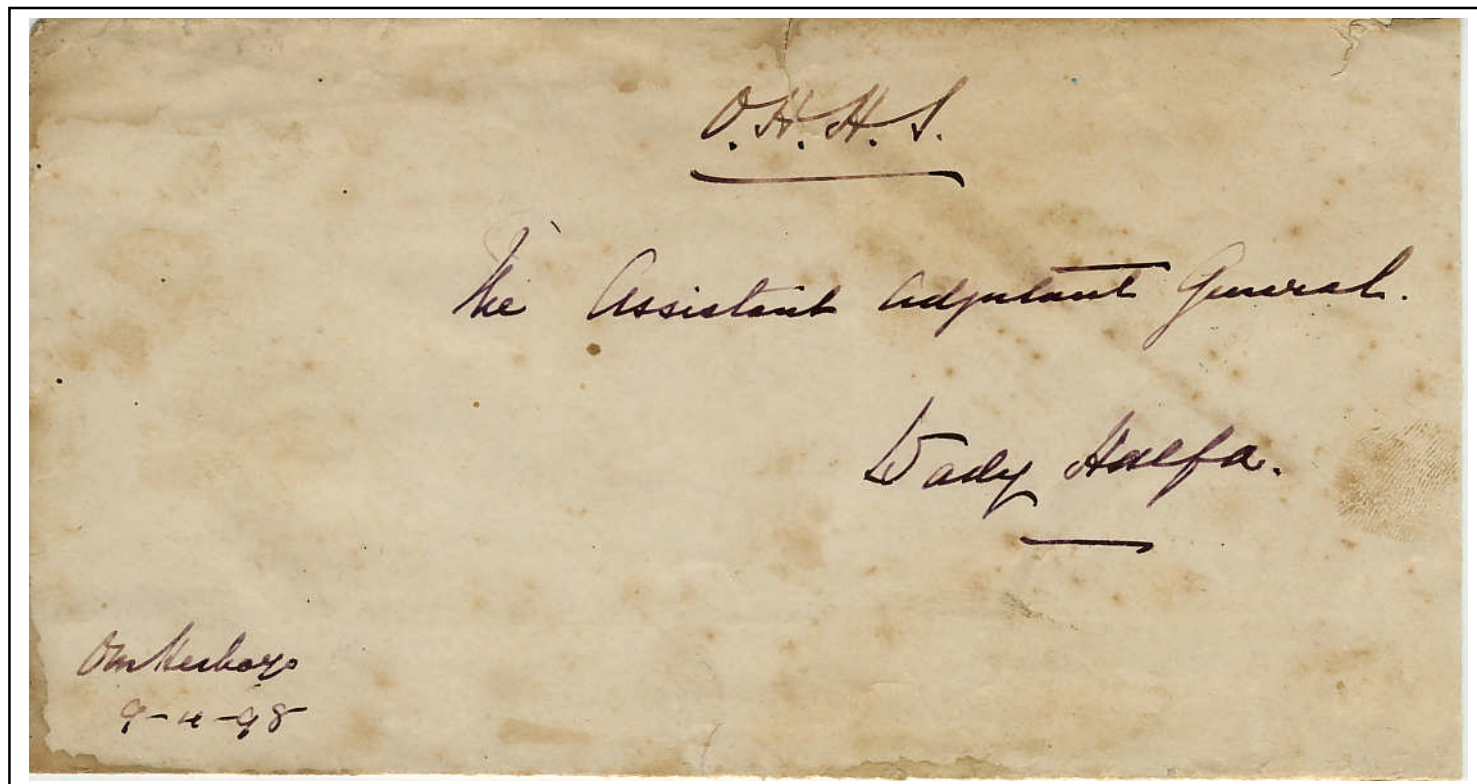 O.H.H.S.
The Assistant Adjutant General.
Wady Halfa.
9-4-98